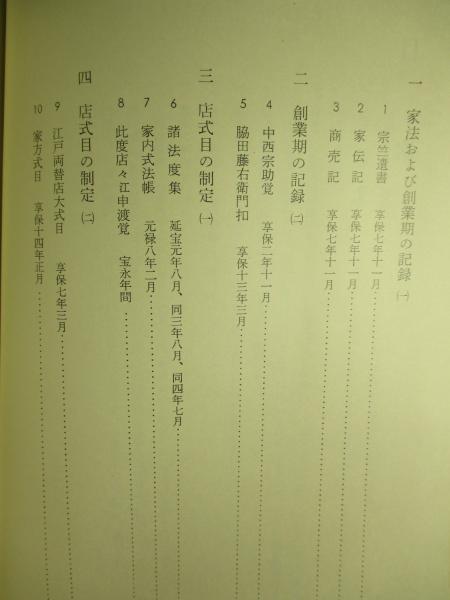 一 家法および創業期の記録 ㈠
1 宗竺遺書 享保七年十一月
2 家伝記 享保七年十一月
3 商売記 享保七年十一月
二 創業期の記録 ㈡
4 中西宗助覚 享保二年十一月
5 脇田藤右衛門扣 享保十三年三月
三 店式目の制定 ㈠
6 諸法度集 延宝元年八月、同三年八月、同四年七月
7 家内式法帳 元禄八年二月
8 此度店々江申渡覚 宝永年間
四 店式目の制定 ㈡
9 江戸両替店大式目 享保七年三月
10 家方式目 享保十四年正月